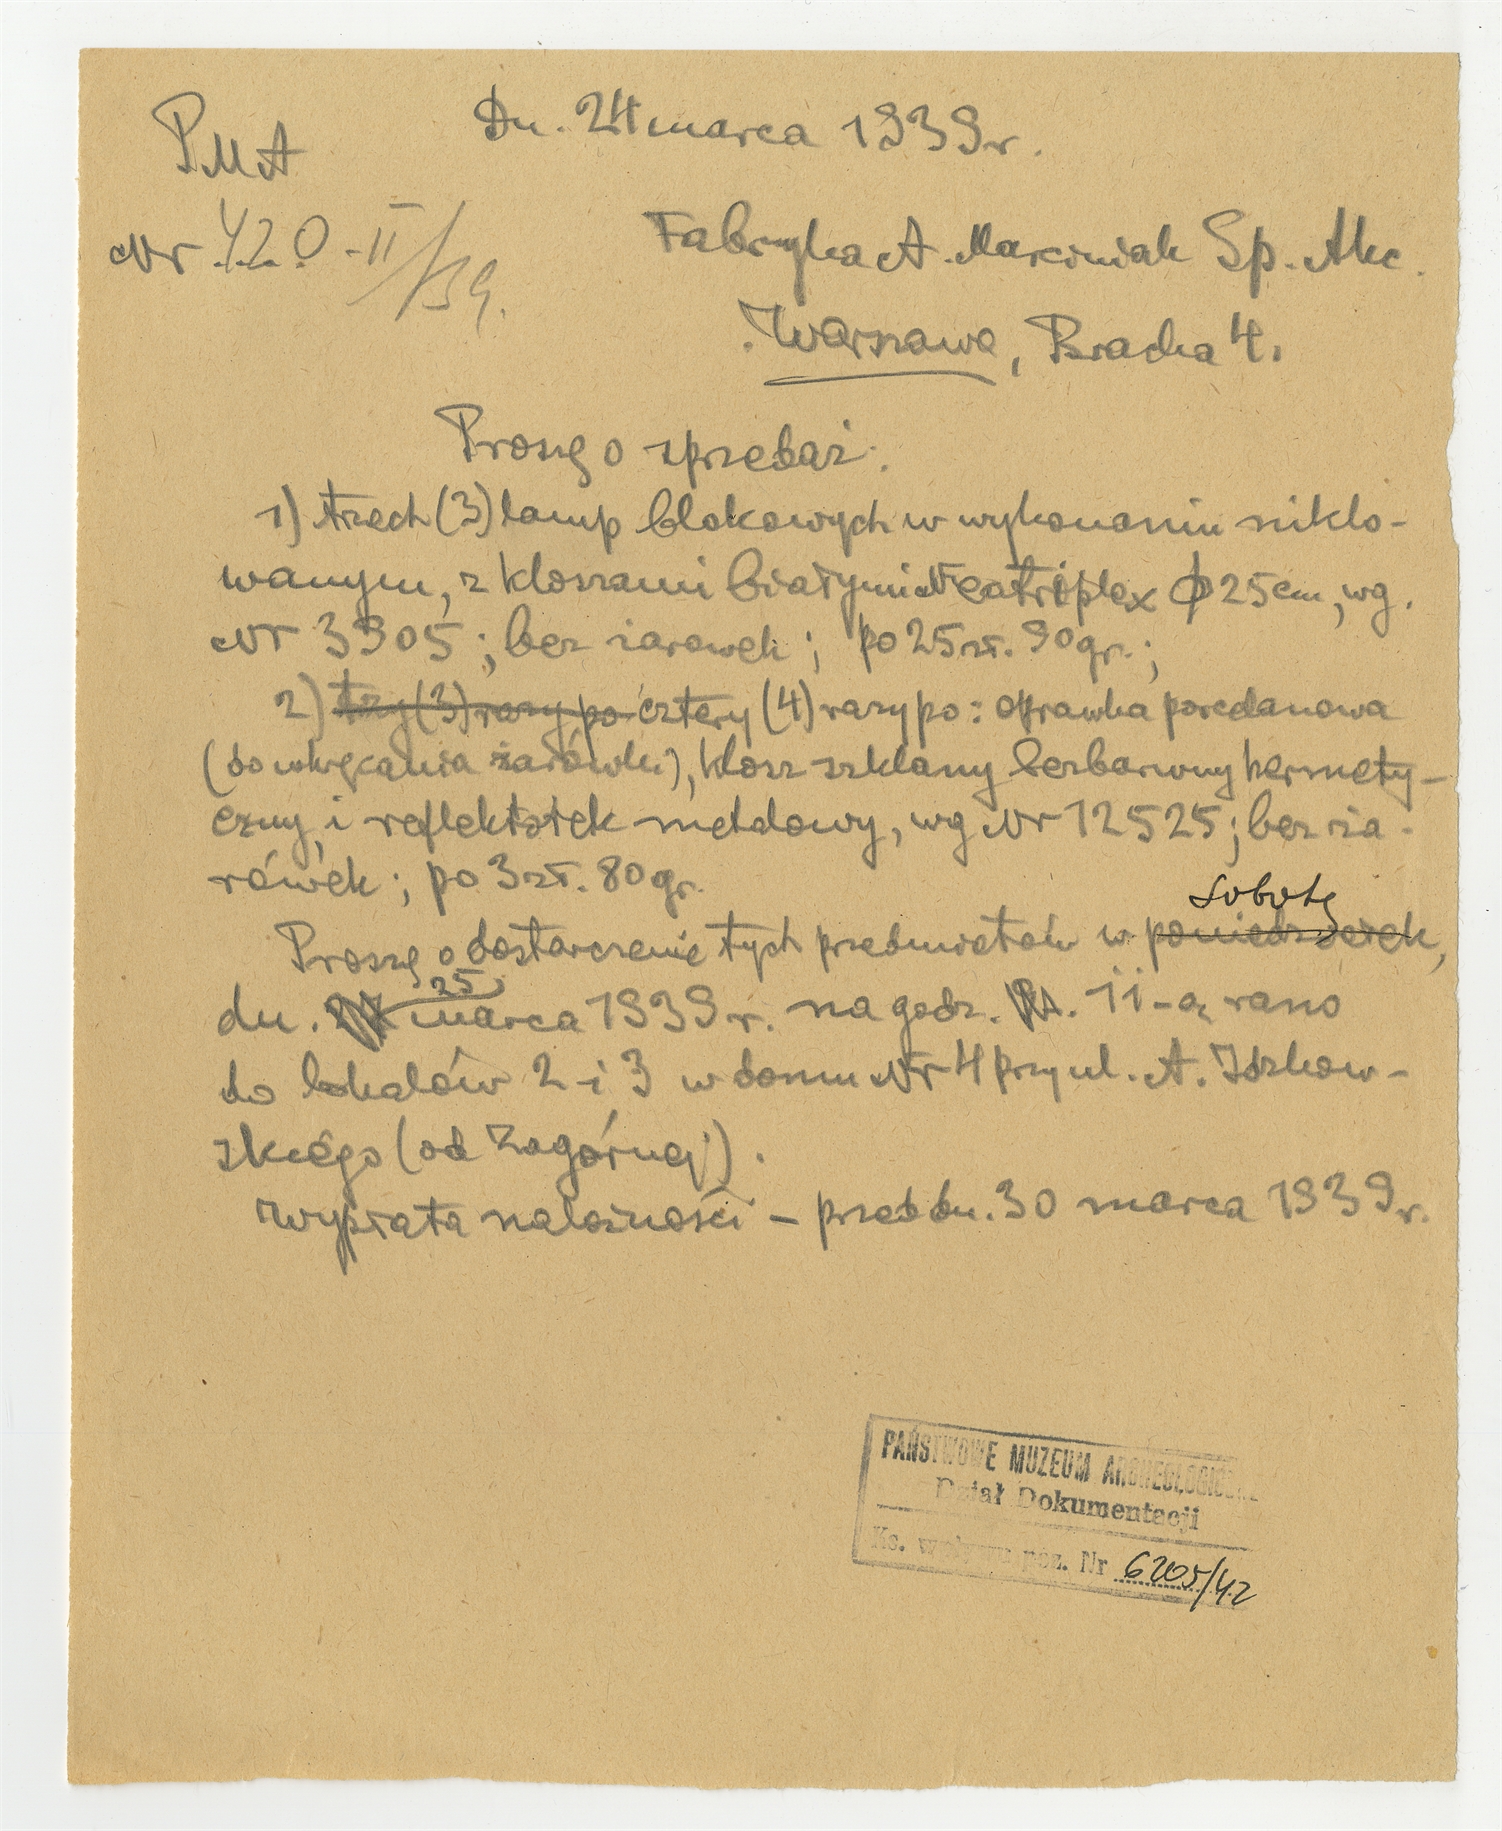 PMA
Dn. 24 marca 1939 r.
Nr 420-II/39.
Fabryka A. Marciniak Sp. Akc.
Warszawa, Bracka 4.
Proszę o sprzedaż:
1) trzech (3) lamp blokowych w wykonaniu niklo-
wanym, z kloszami białymi Neatriplex ϕ 25 cm, wg.
Nr 3905; bez żarówek; po 25 zł. 90 gr.;
2) trzy (3) razy po cztery (4) razy po: oprawka porcelanowa
(do wkręcania żarówki), klosz szklany bezbarwny hermety-
czny i reflektorek metalowy, wg Nr 12525; bez ża-
rówek; po 3 zł. 80 gr.
sobotę
Proszę o dostarczenie tych przedmiotów w poniedziałek,
25
dn. marca 1939 r. na godz. 11-ą rano
do lokalów 2 i 3 w domu Nr 4 przy ul. A. Idzkow-
skiego (od Zagórnej).
Wypłata należności – przed dn. 30 marca 1939 r.
PAŃSTWOWE MUZEUM ARCHEOLOGICZNE
Dział Dokumentacji
Ks. wpływu poz. Nr 6205/42